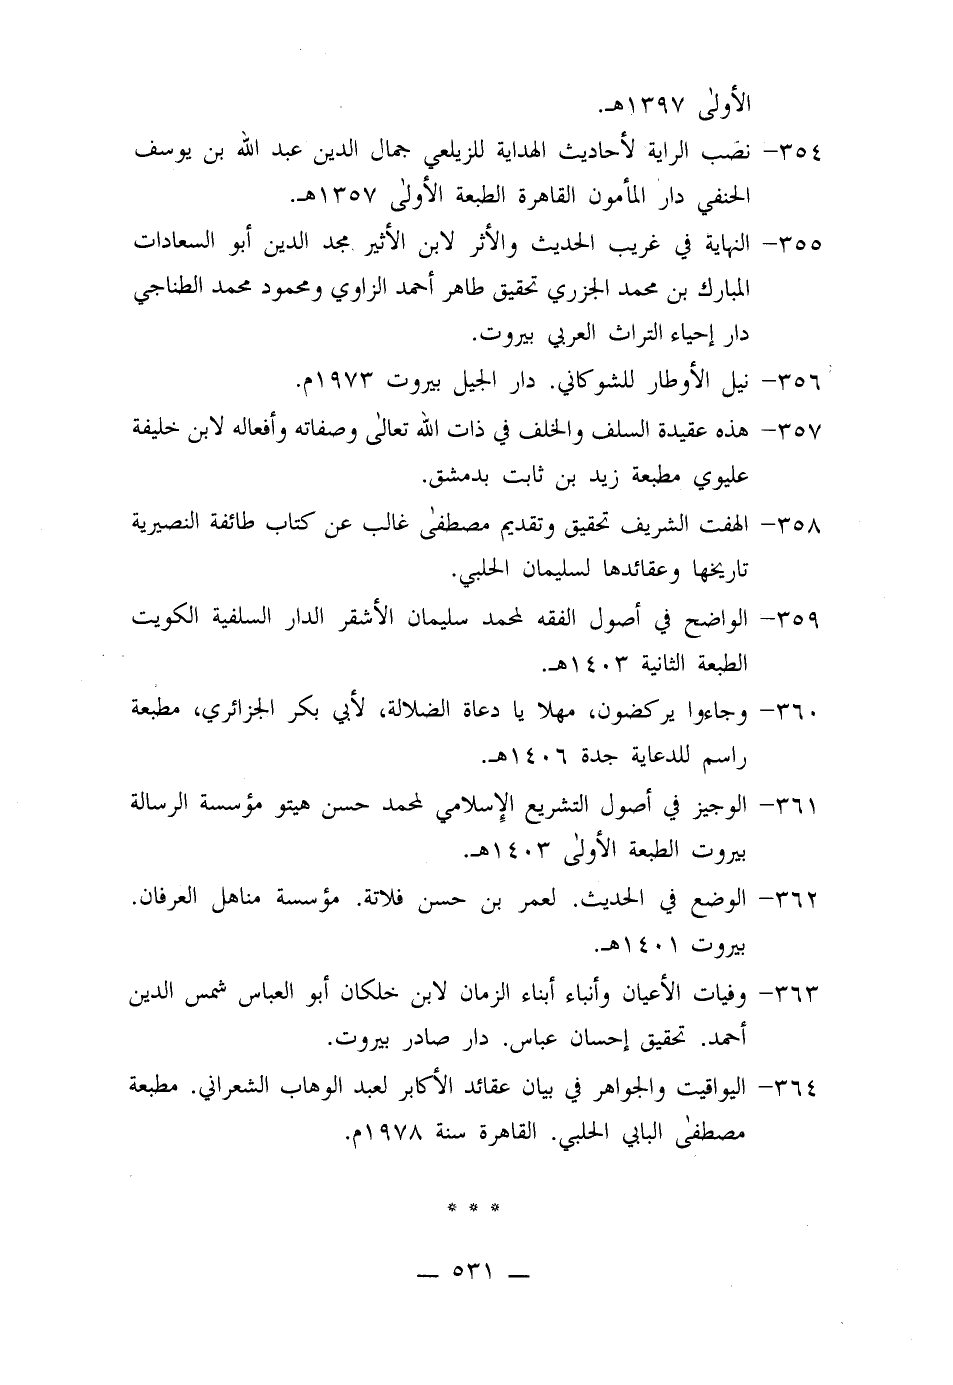 الأولىٰ ١٣٩٧هـ.
٣٥٤- نصَب الراية لأحاديث الهداية للزيلعي جمال الدين عبد الله بن يوسف
الحنفي دار المأمون القاهرة الطبعة الأولىٰ ١٣٥٧هـ.
٣٥٥- النهاية في غريب الحديث والأثر لابن الأثير مجد الدين أبو السعادات
المبارك بن محمد الجزري تحقيق طاهر أحمد الزاوي ومحمود محمد الطناجي
دار إحياء التراث العربي بيروت.
٣٥٦- نيل الأوطار للشوكاني. دار الجيل بيروت ١٩٧٣م.
٣٥٧- هذه عقيدة السلف والخلف في ذات الله تعالىٰ وصفاته وأفعاله لابن خليفة
عليوي مطبعة زيد بن ثابت بدمشق.
٣٥٨- الهفت الشريف تحقيق وتقديم مصطفىٰ غالب عن كتاب طائفة النصيرية
تاريخها وعقائدها لسليمان الحلبي.
٣٥٩- الواضح في أصول الفقه لمحمد سليمان الأشقر الدار السلفية الكويت
الطبعة الثانية ١٤٠٣هـ.
٣٦٠- وجاءوا يركضون، مهلا يا دعاة الضلالة، لأبي بكر الجزائري، مطبعة
راسم للدعاية جدة ١٤٠٦هـ.
٣٦١- الوجيز في أصول التشريع الإسلامي لمحمد حسن هيتو مؤسسة الرسالة
بيروت الطبعة الأولىٰ ١٤٠٣هـ.
٣٦٢- الوضع في الحديث. لعمر بن حسن فلاتة. مؤسسة مناهل العرفان.
بيروت ١٤٠١هـ.
٣٦٣- وفيات الأعيان وأنباء أبناء الزمان لابن خلكان أبو العباس شمس الدين
أحمد. تحقيق إحسان عباس. دار صادر بيروت.
٣٦٤- اليواقيت والجواهر في بيان عقائد الأكابر لعبد الوهاب الشعراني. مطبعة
مصطفىٰ البابي الحلبي. القاهرة سنة ١٩٧٨م.
* * *
— ٥٣١ —